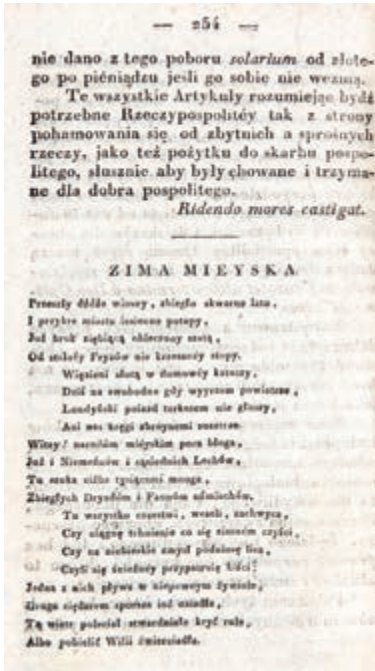 — 254 —
nie dano z tego poboru solarium od złote-
go po piéniądzu jeśli go sobie nie wezmą.
Te wszystkie Artykuły rozumiejąc bydź
potrzebne Rzeczypospolitéy tak z strony
pohamowania się od zbytnich a sprośnych
rzeczy, jako też pożytku do skarbu pospo-
litego, słusznie aby były chowane i trzyma-
ne dla dobra pospolitego.
Ridendo mores castigat.
ZIMA MIEYSKA
Przeszły dżdże wiosny, zbiegło skwarne lato,
I przykre miastu jesienne potopy,
Już bruk ziębiącą obleczony szatą,
Od stalnéy Fryzów nie krzesany stopy.
Więzieni słotą w domowéy katuszy,
Dziś na swobodne gdy wyyrzem powietrze,
Londyński pojazd tarkotem nie głuszy,
Ani nas kręgi zbroynemi rozetrze.
Witay! narodom mieyskim pora błoga,
Już i Niemeńców i sąsiednich Lechów,
Tu szuka ciżba tysiącami mnoga,
Zbiegłych Dryadów i Faunów uśmiechów,
Tu wszystko czerstwi, weseli, zachwyca,
Czy ciągnę tchnienie co się zimnem czyści,
Czy na niebieskie zmysł podniosę lica,
Czyli się śnieżnéy przypatruję kiści;
Jedna z nich pływa w niepewnym żywiole,
Druga ciężarem sporsza już osiadła,
Tę wiatr poleciał stwardniałe kryć role,
Albo pobielić Wilii źwierciadła.